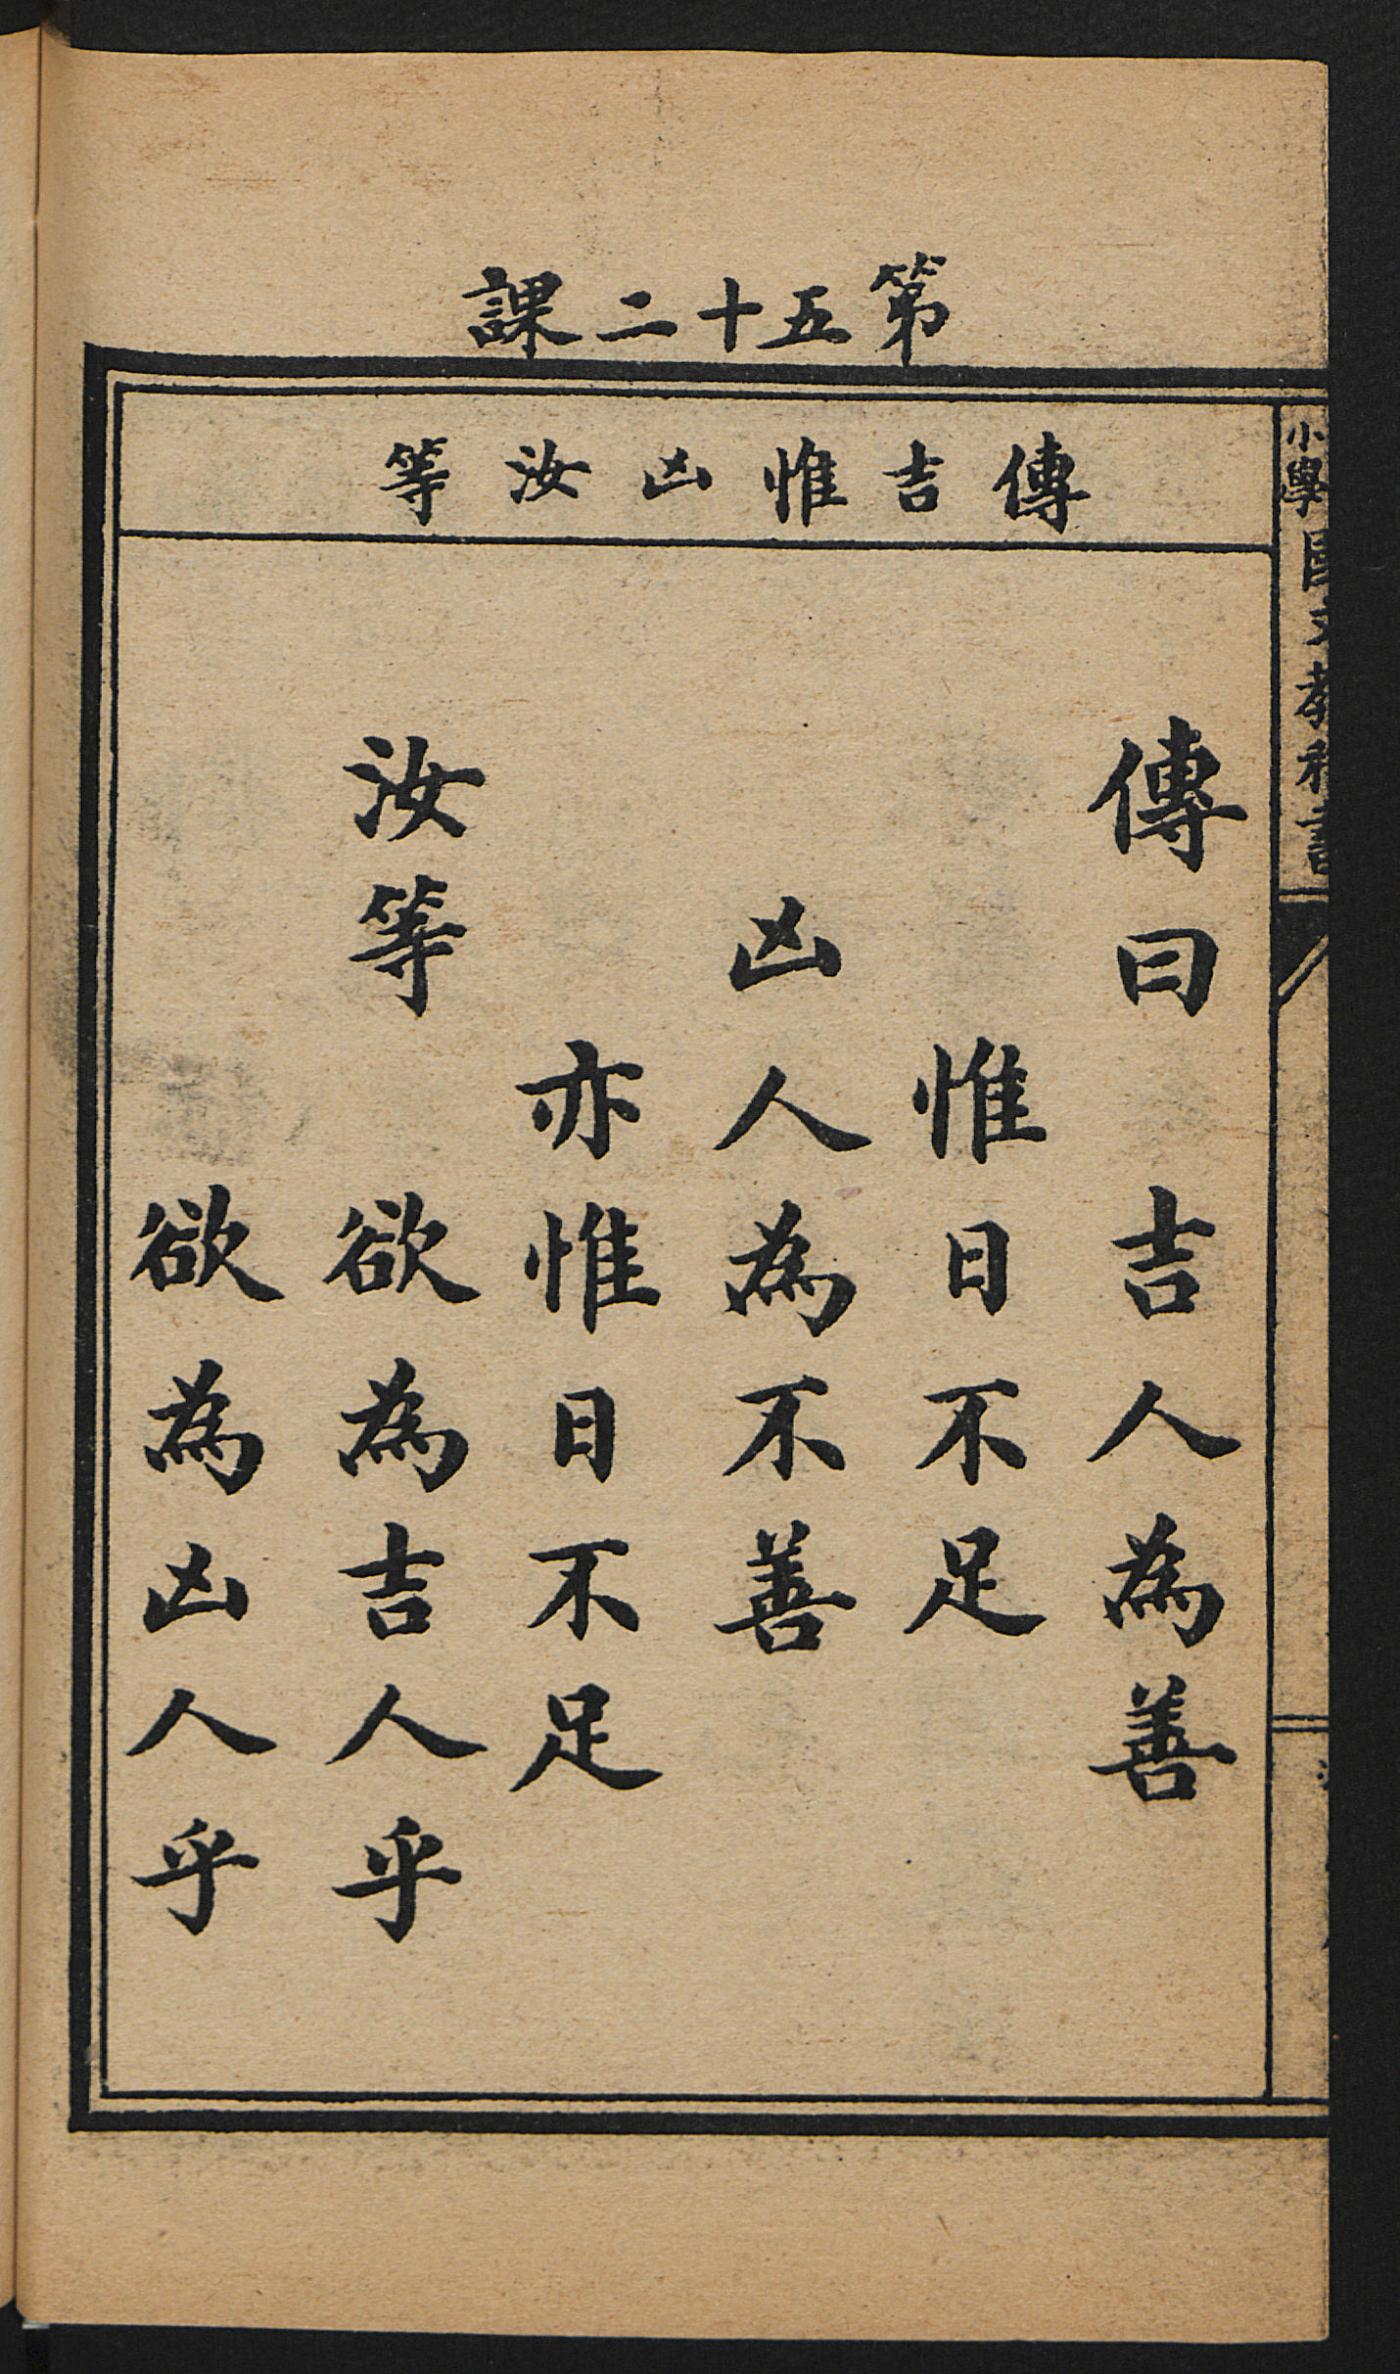 第五十二課
傳吉惟凶汝等
傳曰 吉人為善
惟日不足
凶人為不善
亦惟日不足
汝等 欲為吉人乎
欲為凶人乎
小學國文教科書